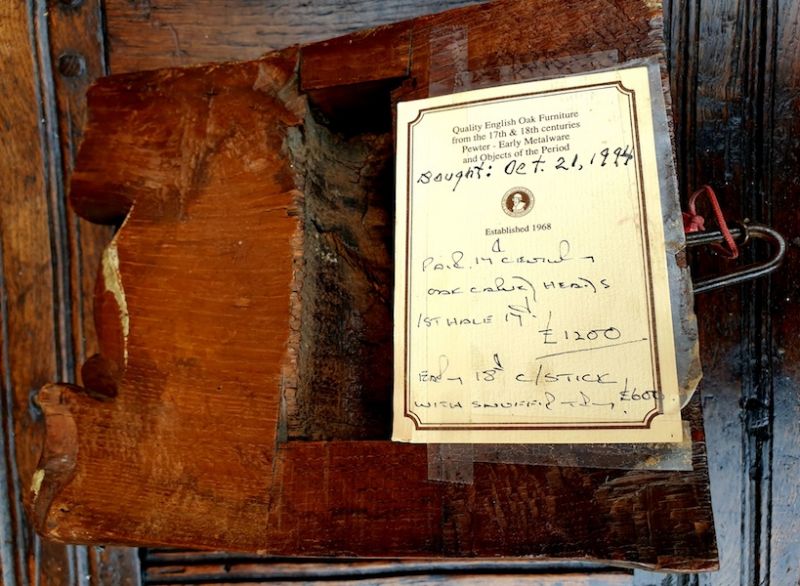 Quality English Oak Furniture
from the 17th & 18th centuries
Pewter - Early Metalware
and Objects of the Period
Bought: Oct. 21, 1994
Established 1968
PAIR 17 CENTURY
OAK CARVED HEADS
1ST HALF 17th
£1200
Early 18th C/STICK
WITH SNUFFER TRAY £600